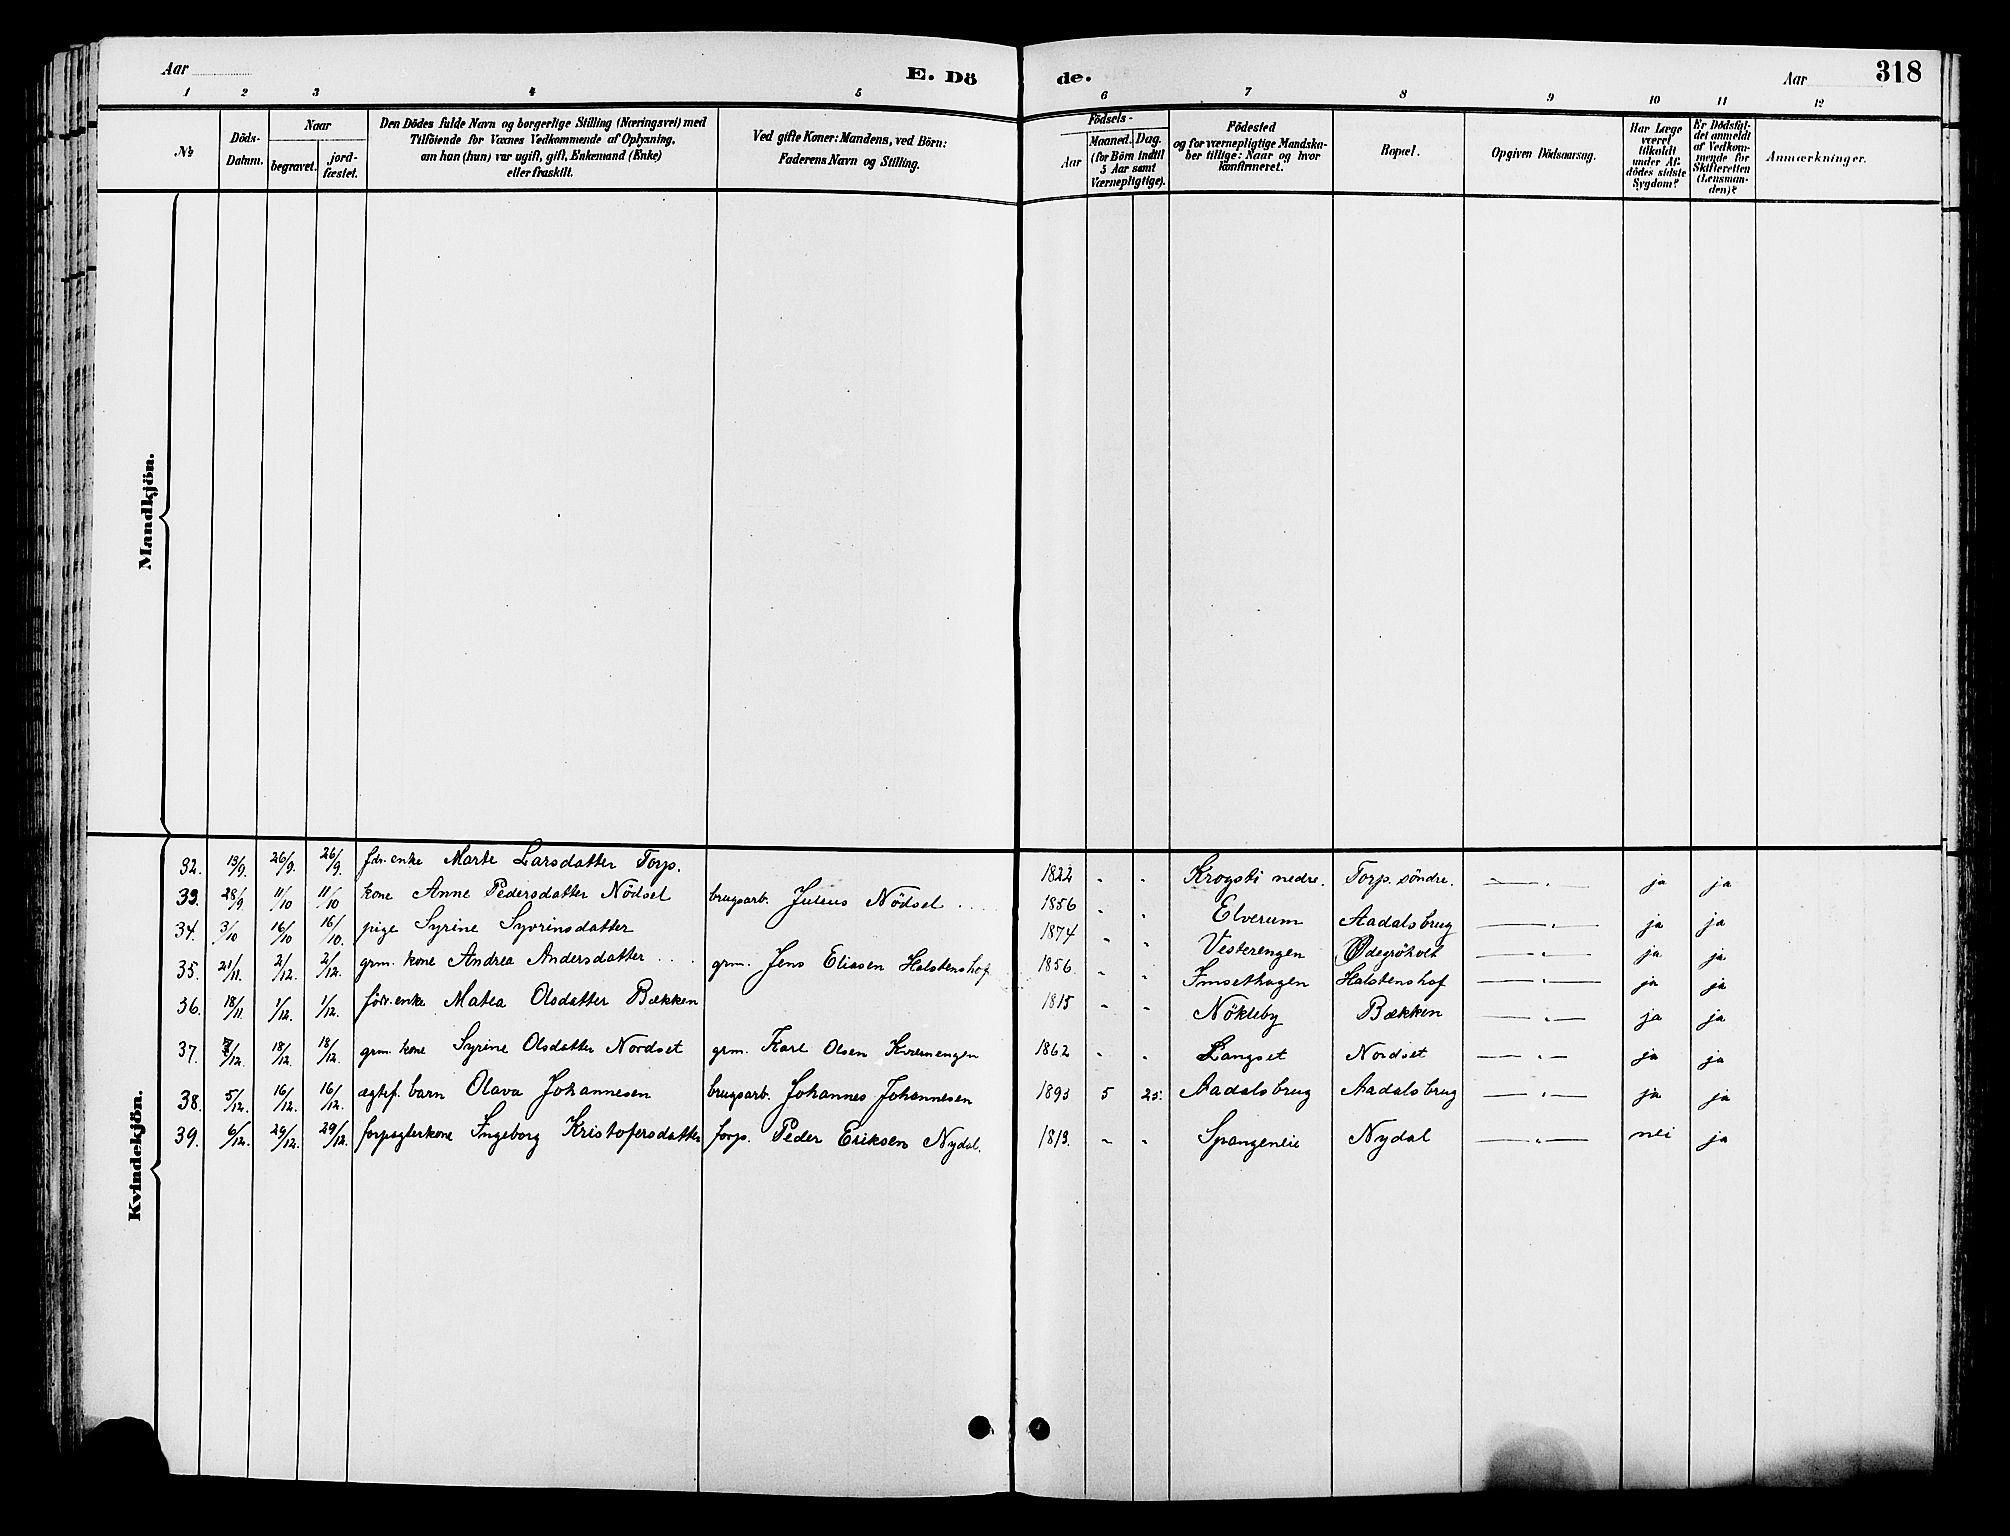 Aar
E. Dö de.
Aar
318
1 2 3 4 5 6 7 8 9 10 11 12
№
Döds-
Datum.
Naar
begravet.
jord-
fæstet.
Den Dödes fulde Navn og borgerlige Stilling (Næringsvei) med
Tilföiende for Voxnes Vedkommende af Oplysning,
om han (hun) var ugift, gift, Enkemand (Enke)
eller fraskilt.
Ved gifte Koner: Mandens, ved Börn:
Faderens Navn og Stilling.
Födsels-
Aar
Maaned. Dag.
(for Börn indtil
5 Aar samt
Værnepligtige).
Födested
og for værnepligtige Mandska-
ber tillige: Naar og hvor
konfirmeret.
Bopæl.
Opgiven Dödsaarsag.
Har Læge
været
tilkaldt
under Af-
dödes sidste
Sygdom?
Er Dödsfal-
det anmeldt
af Vedkom-
mende for
Skifteretten
(Lensman-
den)?
Anmærkninger.
Mandkjön.
Kvindekjön.
32. 13/9. 26/9. 26/9. fdr. enke Marte Larsdatter Torp. 1822 " " Krogsti nedre. Torp söndre. — " — ja ja
33. 28/9 11/10 11/10 kone Anne Pedersdatter Nödsel brugsarb. Julius Nödsel 1856 " " Elverum Aadalsbrug — " — ja ja
34. 3/10 16/10 16/10. pige Syrine Syvrinsdatter 1874 " " Vesterengen — " — ja ja
35. 21/11. 2/12. 2/12. grm. kone Andrea Andersdatter grm. Jens Eliasen Halstenshof 1856. " " Imsethagen Halstenshof — " — ja ja
36. 18/11. 1/12. 1/12. födr. enke Matea Olsdatter Bækken 1815 " " Nökleby Bækken — " — ja ja
37. 18/12. 18/12. grm. kone Syrine Olsdatter Nordset grm. Karl Olsen Kværnengen 1862 " " Langset Nordset — " — ja ja
38. 5/12. 16/12. 16/12. ægtef. barn Olava Johannesen brugsarb. Johannes Johannesen 1893 5 25. Aadalsbrug Aadalsbrug — " — ja ja
39. 6/12. 29/12. 29/12. forpagterkone Ingeborg Kristofersdatter forp. Peder Eriksen Nydal. 1813. " " Spangeneie Nydal — " — nei ja